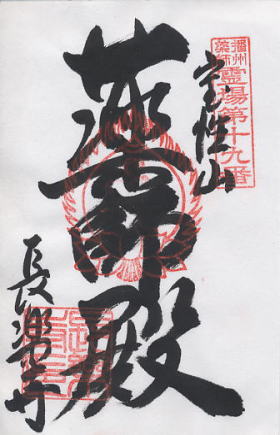 播州
薬師
霊場第十九番
宝性山
薬師殿
長楽寺